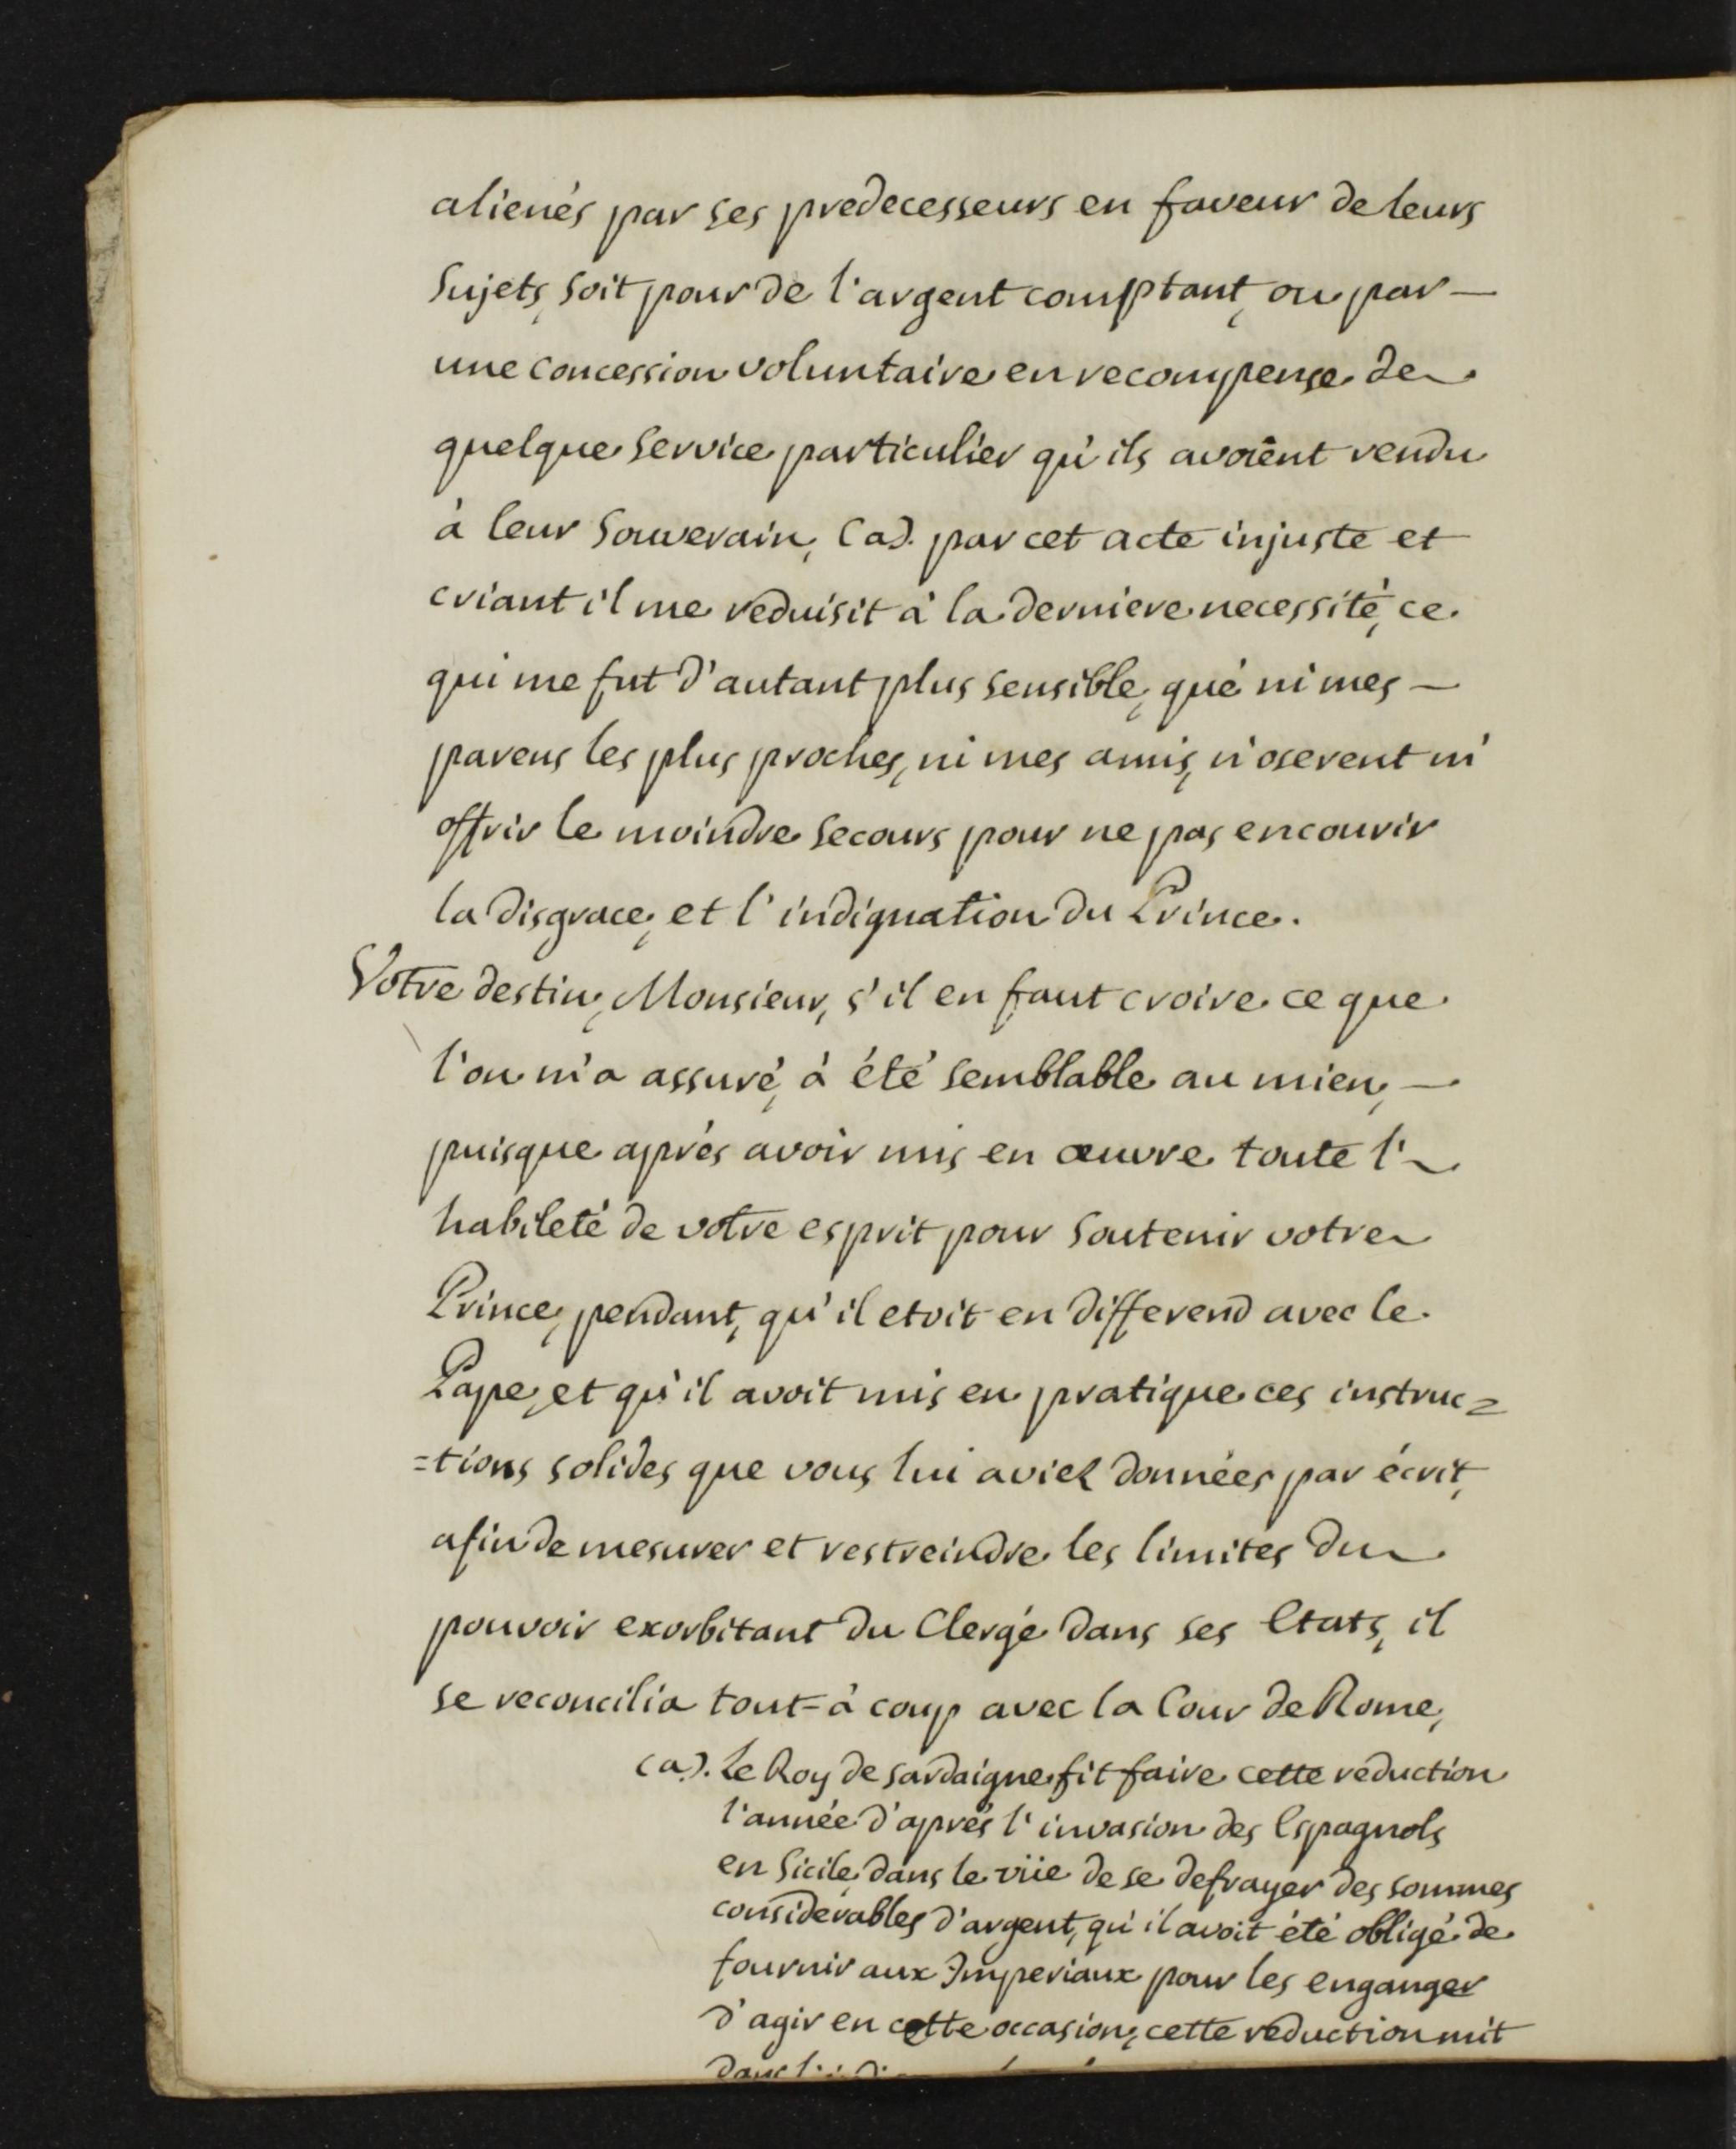 alienés par ses predecesseurs en faveur de leurs
Sujets, soit pour de l'argent comptant, ou par —
une concession voluntaire en recompense de
quelque service particulier qu'ils avoient rendu
à leur Souverain, (a). par cet acte injuste et
criant il me reduisit à la derniere necessité, ce
qui me fut d'autant plus sensible, que ni mes —
parens les plus proches, ni mes amis, n'oserent m'
offrir le moindre secours pour ne pas encourir
la disgrace, et l'indignation du Prince.
Votre destin, Monsieur, s'il en faut croire ce que
l'on m'a assuré, à été semblable au mien, —
puisque aprés avoir mis en œuvre toute l'
habileté de votre esprit pour soutenir votre
Prince, pendant, qu'il etoit en differend avec le
Pape, et qu'il avoit mis en pratique ces instruc=
=tions solides que vous lui aviez données par écrit,
afin de mesurer et restreindre les limites du
pouvoir exorbitant du Clergé dans ses Etats, il
se reconcilia tout=à coup avec la Cour de Rome,
(a). Le Roy de Sardaigne fit faire cette reduction
l'année d'aprés l'invasion des Espagnols
en Sicile, dans le vüe de se defrayer des sommes
considerables d'argent, qu'il avoit été obligé de
fournir aux Imperiaux pour les enganger
d'agir en cette occasion, cette reduction mit